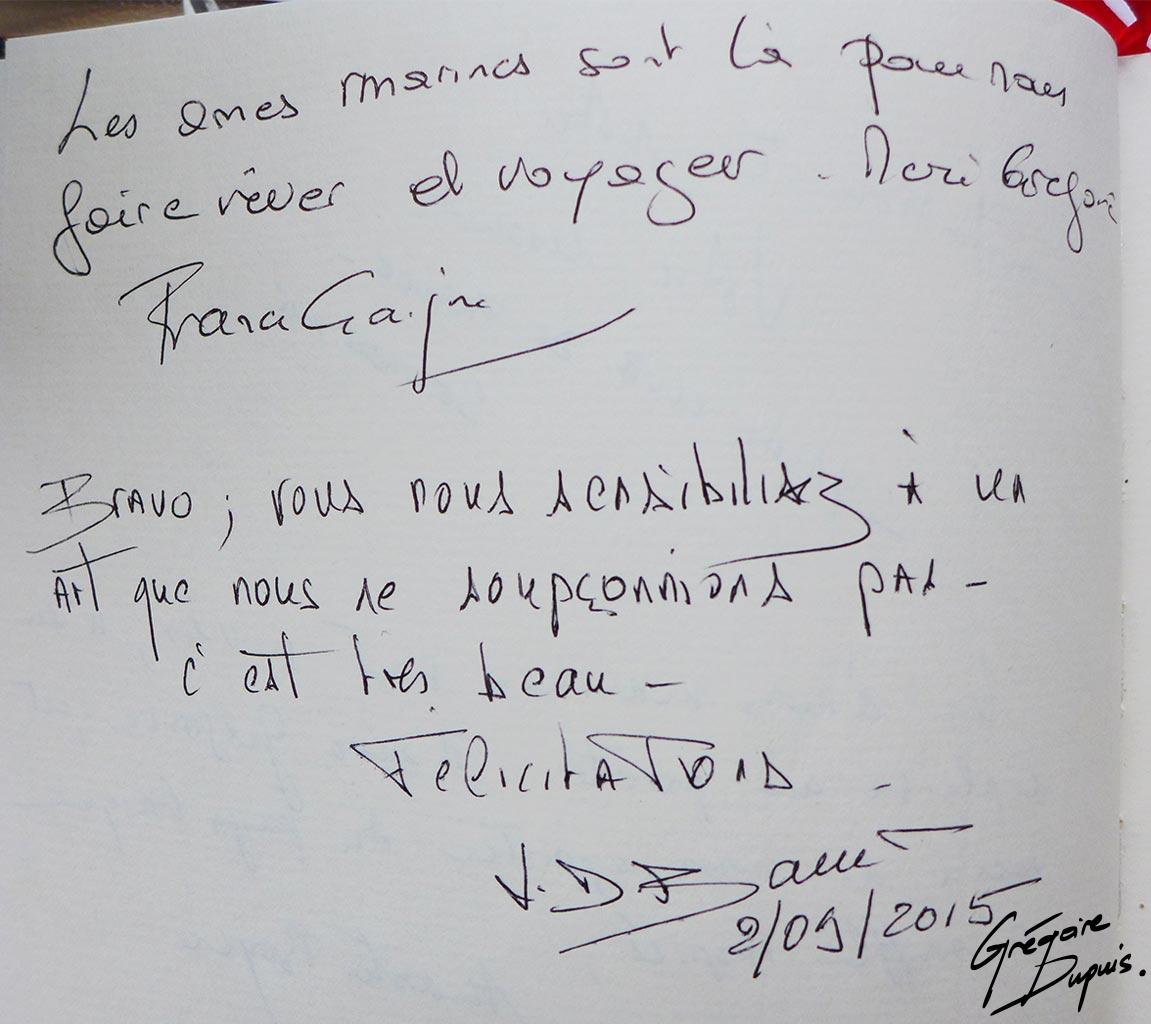 Les ames marines sont là pour nous
faire rêver et voyager. Merci Grégoire
Bravo ; vous nous sensibilisez à un
Art que nous ne soupçonnions pas -
c'est très beau -
Felicitations -
2/09/2015
Grégoire
Dupuis.